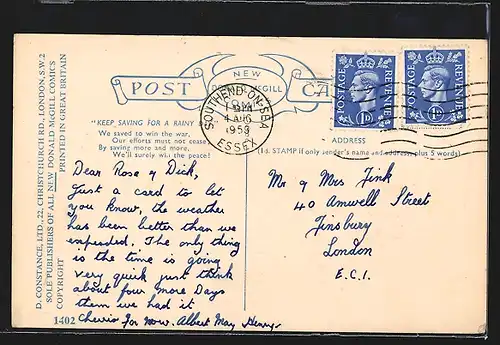 POST CARD
NEW
DONALD McGILL
"KEEP SAVING FOR A RAINY
We saved to win the war,
Our efforts must not cease,
By saving more and more,
We'll surely win the peace!
SOUTHEND-ON-SEA
4 AUG
1953
ESSEX
POSTAGE REVENUE
1D
POSTAGE REVENUE
1D
ADDRESS
(1d. STAMP if only sender's name and address, plus 5 words)
D. CONSTANCE, LTD., 22, CHRISTCHURCH RD., LONDON, S.W.2
SOLE PUBLISHERS OF ALL NEW DONALD McGILL COMICS
COPYRIGHT PRINTED IN GREAT BRITAIN
1402
Dear Rose & Dick,
Just a card to let
you know, the weather
has been better than we
expected. The only thing
is the time is going
very quick just think
about four more Days
them we had it
Cheerio for now. Albert May Henry.
Mr & Mrs Fink
40 Amwell Street
Finsbury
London
E.C.1.